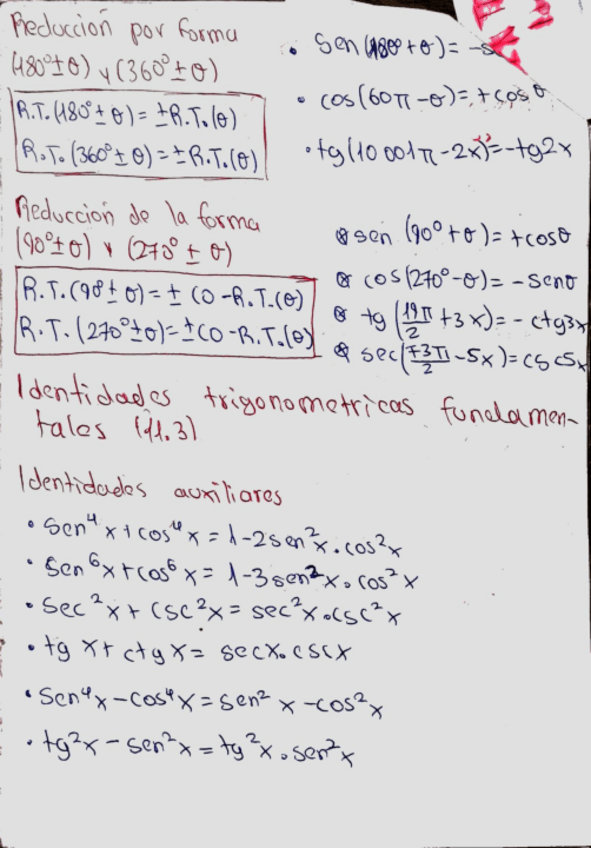 Reducción por forma
(180°±θ) y (360°±θ)
R.T.(180°±θ)=±R.T.(θ)
R.T.(360°±θ)=±R.T.(θ)
• Sen(180°+θ)= -s
• cos(60π-θ)=+cosθ
• tg(10 001π-2x)=-tg2x
Reducción de la forma
(90°±θ) y (270°±θ)
R.T.(90°±θ)=± CO-R.T.(θ)
R.T.(270°±θ)=±CO-R.T.(θ)
sen (90°+θ)=+cosθ
cos(270°-θ)=-senθ
tg(19π/2+3x)=-ctg3x
sec(73π/2-5x)=csc5x
Identidades trigonometricas fundamen-
tales (11.3)
Identidades auxiliares
• Sen⁴x+cos⁴x=1-2sen²x.cos²x
• Sen⁶x+cos⁶x=1-3sen²x.cos²x
• Sec²x+csc²x=sec²x.csc²x
• tgx+ctgx=secx.cscx
• Sen⁴x-cos⁴x=sen²x-cos²x
• tg²x-sen²x=tg²x.sen²x